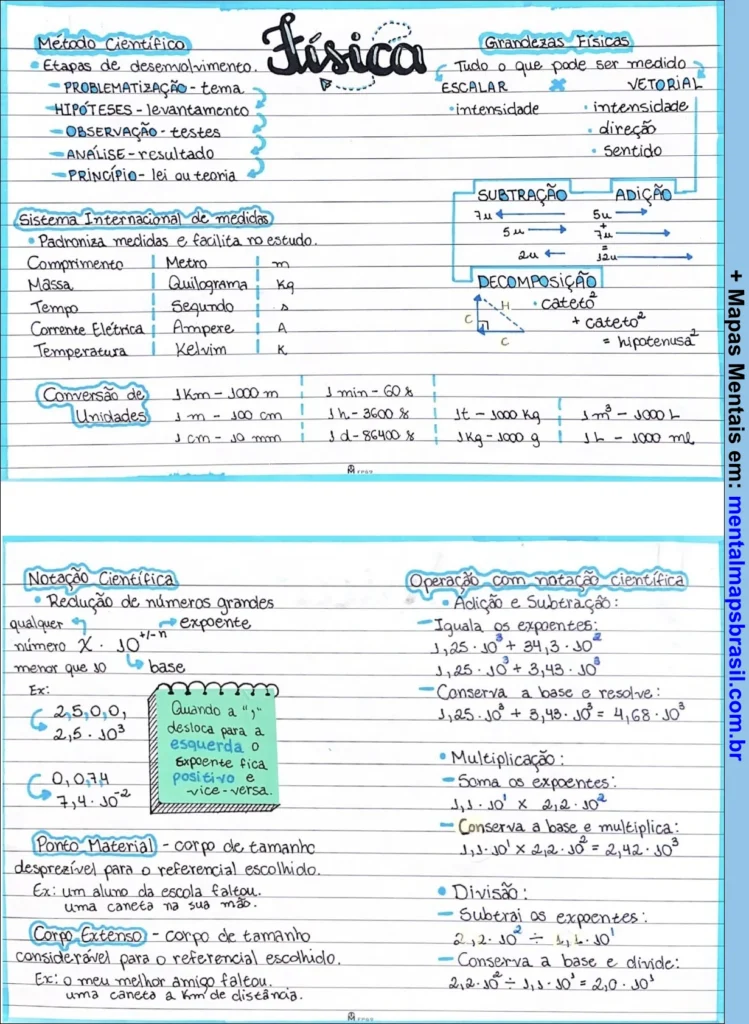 Física
Método Científico
• Etapas de desenvolvimento.
- PROBLEMATIZAÇÃO - tema
- HIPÓTESES - levantamento
- OBSERVAÇÃO - testes
- ANÁLISE - resultado
- PRINCÍPIO - lei ou teoria
Grandezas Físicas
Tudo o que pode ser medido
ESCALAR × VETORIAL
• intensidade
• intensidade
• direção
• sentido
SUBTRAÇÃO
7u
5u
2u
ADIÇÃO
5u
+
7u
=
12u
DECOMPOSIÇÃO
H
C
C
• cateto²
+ cateto²
= hipotenusa²
Sistema Internacional de medidas
• Padroniza medidas e facilita no estudo.
Comprimento | Metro | m
Massa | Quilograma | Kg
Tempo | Segundo | s
Corrente Elétrica | Ampere | A
Temperatura | Kelvim | K
Conversão de Unidades
1 Km - 1000 m
1 m - 100 cm
1 cm - 10 mm
1 min - 60 s
1 h - 3600 s
1 d - 86400 s
1t - 1000 Kg
1Kg - 1000 g
1 m³ - 1000 L
1 L - 1000 ml
Notação Científica
• Redução de números grandes
qualquer número menor que 10
X · 10^+/-n
expoente
base
Ex:
2,5,0,0,
2,5 · 10³
0,0,74
7,4 · 10^-2
Quando a ","
desloca para a
esquerda o
Expoente fica
positivo e
vice-versa.
Ponto Material - corpo de tamanho
desprezível para o referencial escolhido.
Ex: um aluno da escola faltou.
uma caneta na sua mão.
Corpo Extenso - corpo de tamanho
considerável para o referencial escolhido.
Ex: o meu melhor amigo faltou.
uma caneta a Km de distância.
Operação com notação científica
• Adição e Subtração:
- Iguala os expoentes:
1,25 · 10³ + 34,3 · 10²
1,25 · 10³ + 3,43 · 10³
- Conserva a base e resolve:
1,25 · 10³ + 3,43 · 10³ = 4,68 · 10³
• Multiplicação:
- Soma os expoentes:
1,1 · 10¹ × 2,2 · 10²
- Conserva a base e multiplica:
1,1 · 10¹ × 2,2 · 10² = 2,42 · 10³
• Divisão:
- Subtrai os expoentes:
2,2 · 10² ÷ 1,1 · 10¹
- Conserva a base e divide:
2,2 · 10² ÷ 1,1 · 10¹ = 2,0 · 10¹
+ Mapas Mentais em: mentalmapsbrasil.com.br